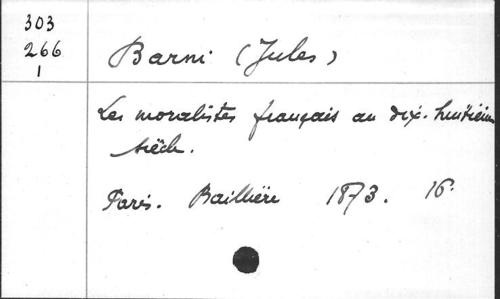 303
266
1
Barni (Jules)
Les moralistes français au dix-huitième
siècle.
Paris. Baillière 1873. 16°